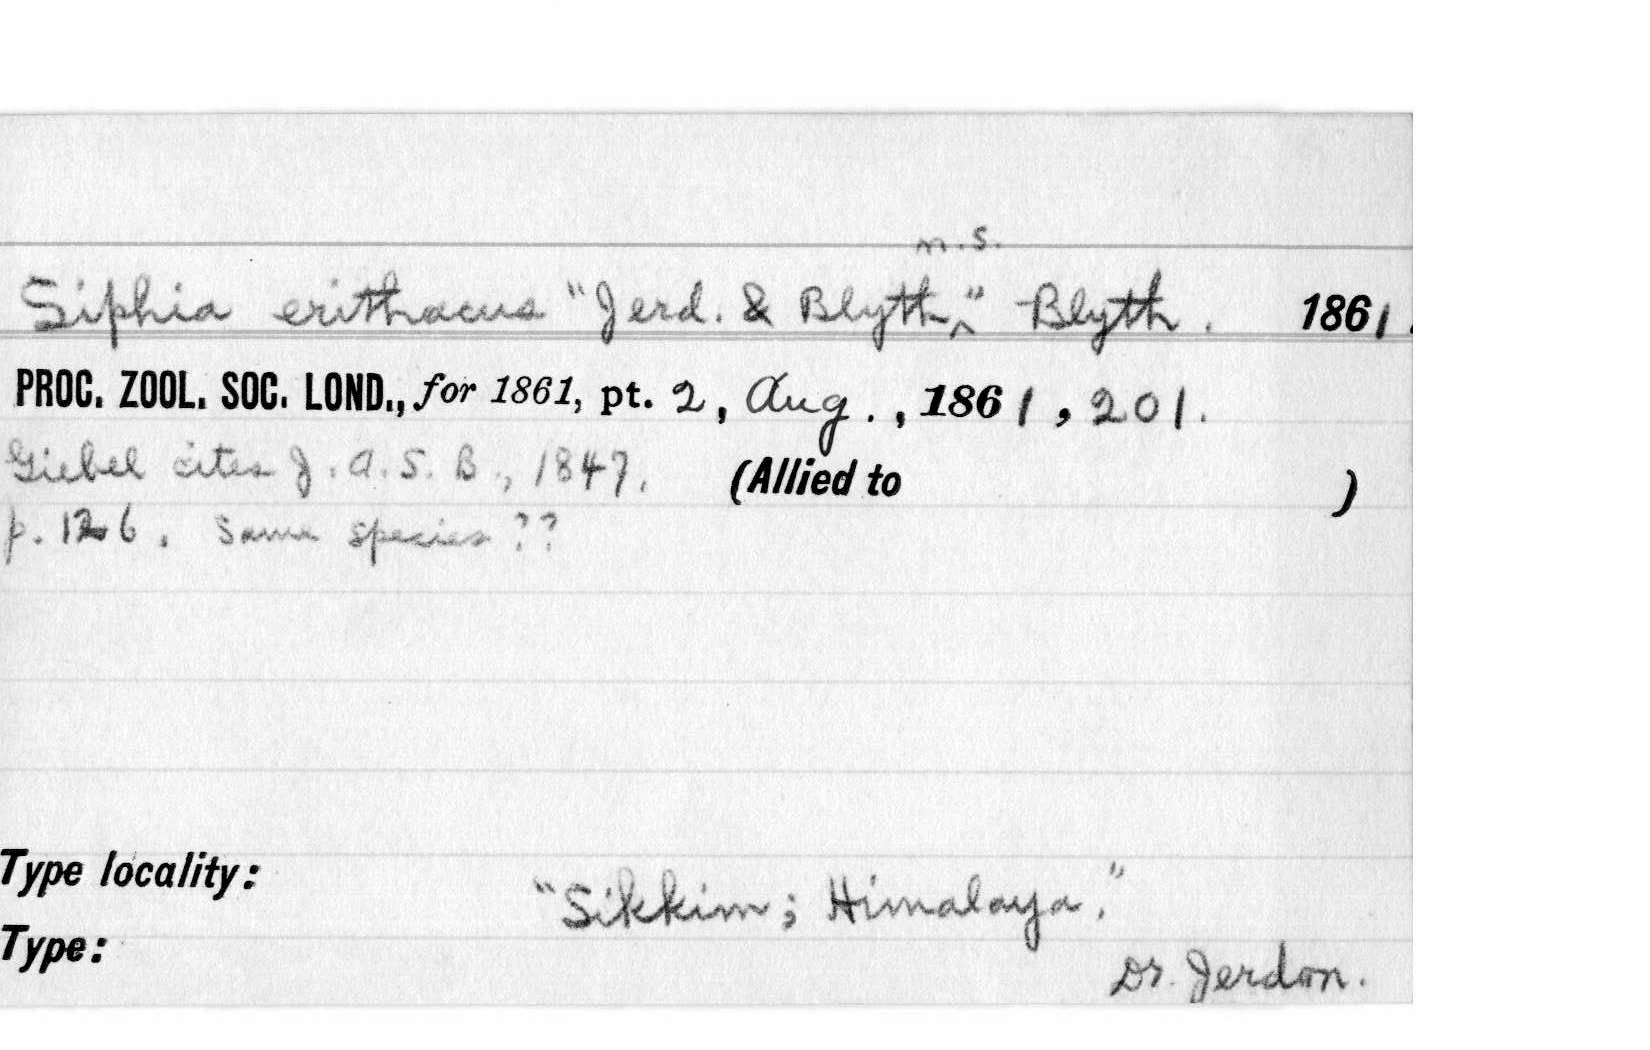 Siphia erithacus "Jerd. & Blyth, m.s." Blyth. 1861.
PROC. ZOOL. SOC. LOND., for 1861, pt. 2, Aug., 1861, 201.
Giebel cites J.A.S.B., 1847. (Allied to )
p. 126. Same species ??
Type locality:
"Sikkim; Himalaya."
Type:
Dr. Jerdon.